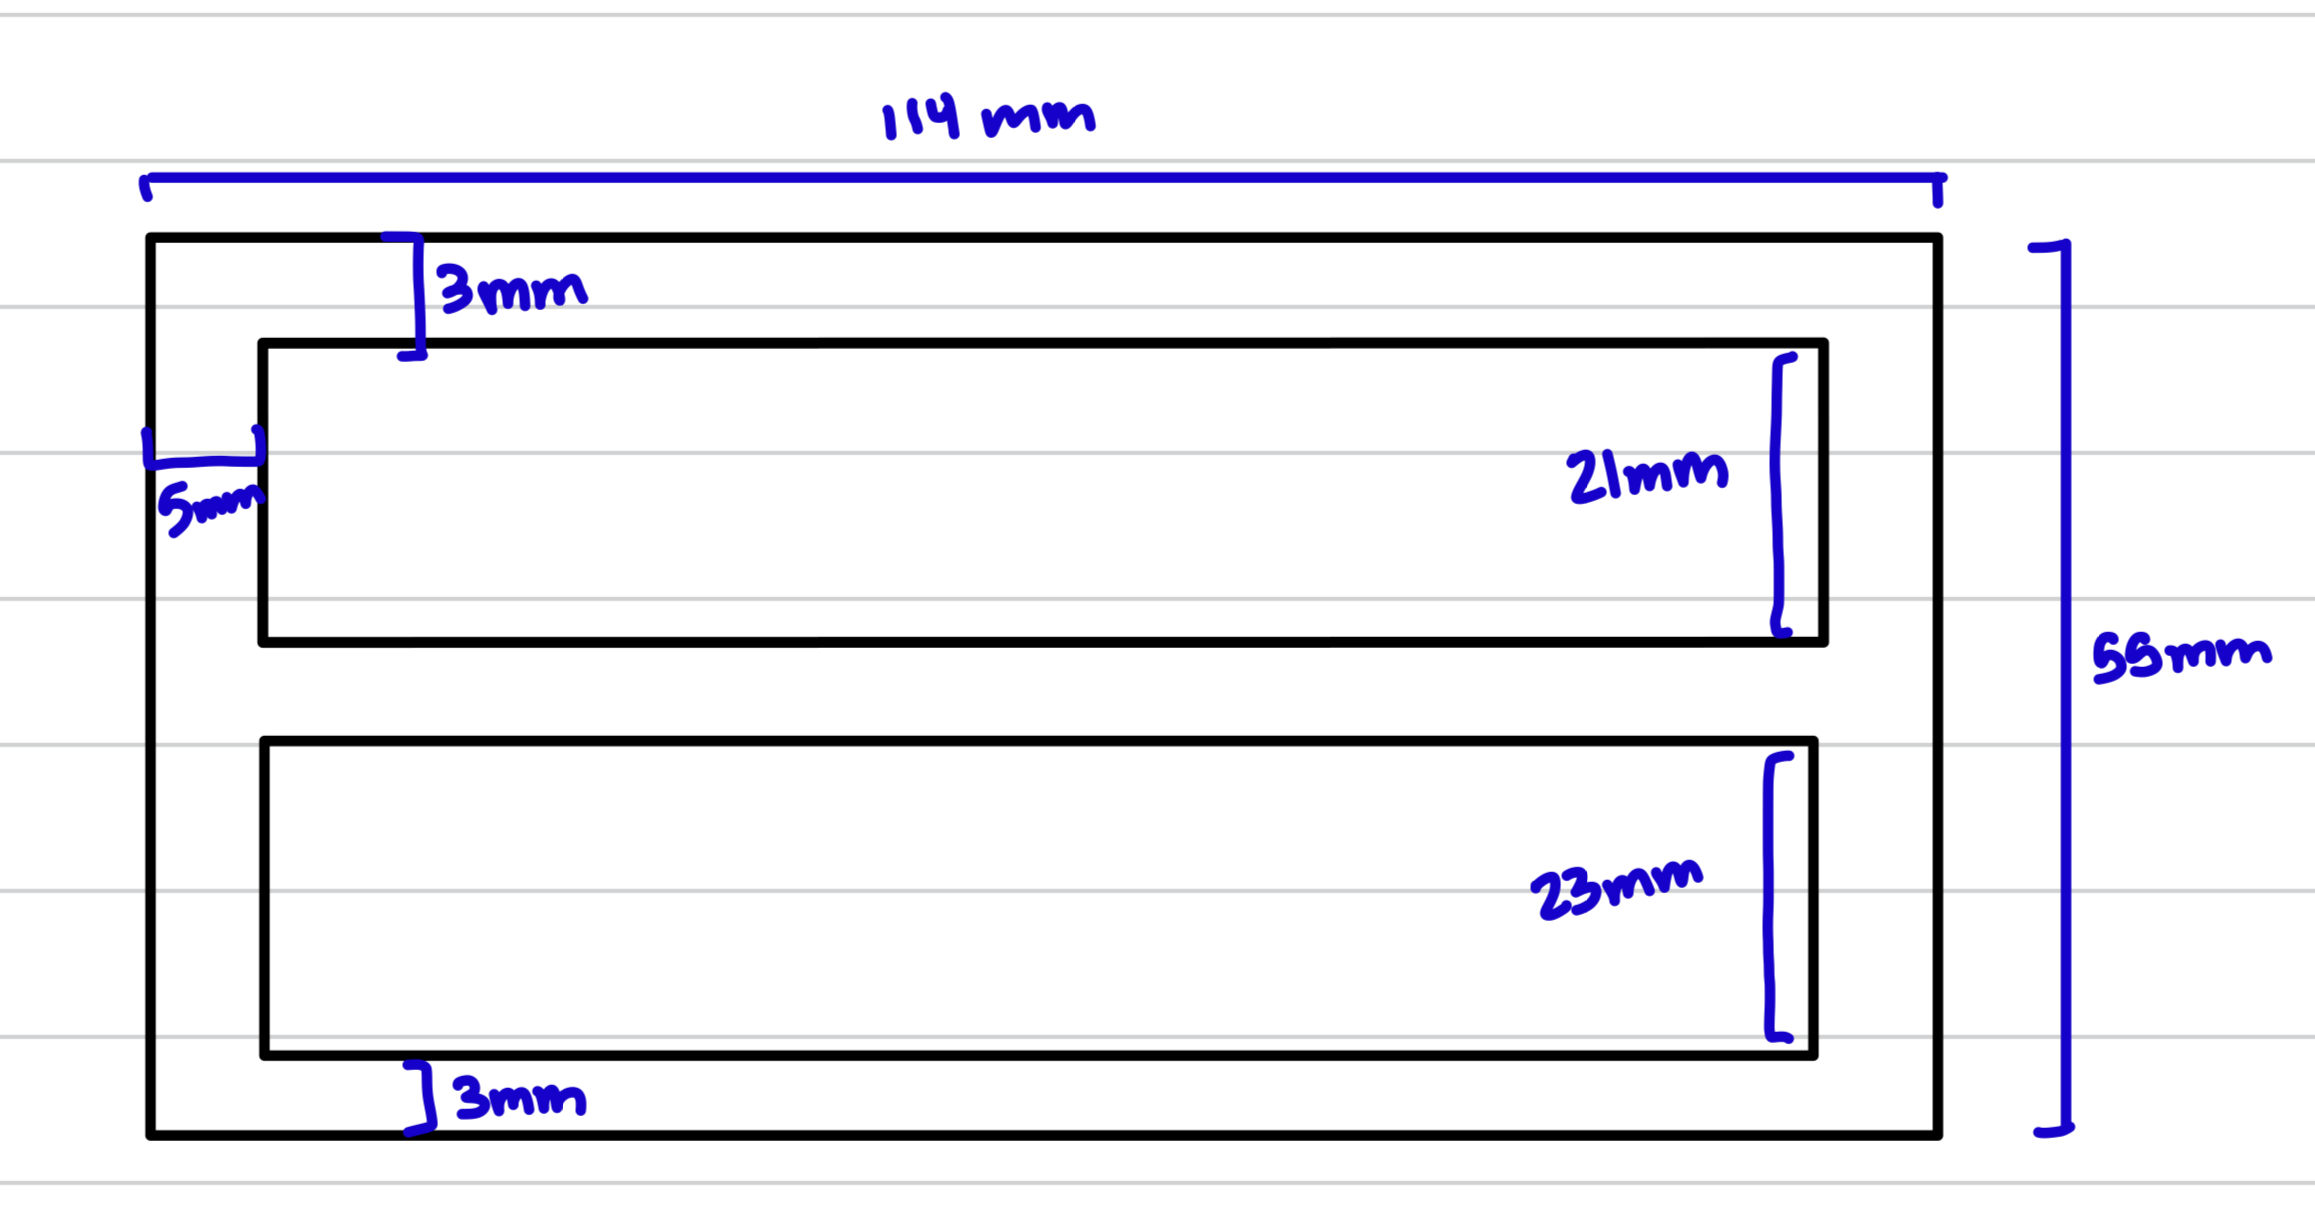 114 mm
3mm
21mm
5mm
55mm
23mm
3mm